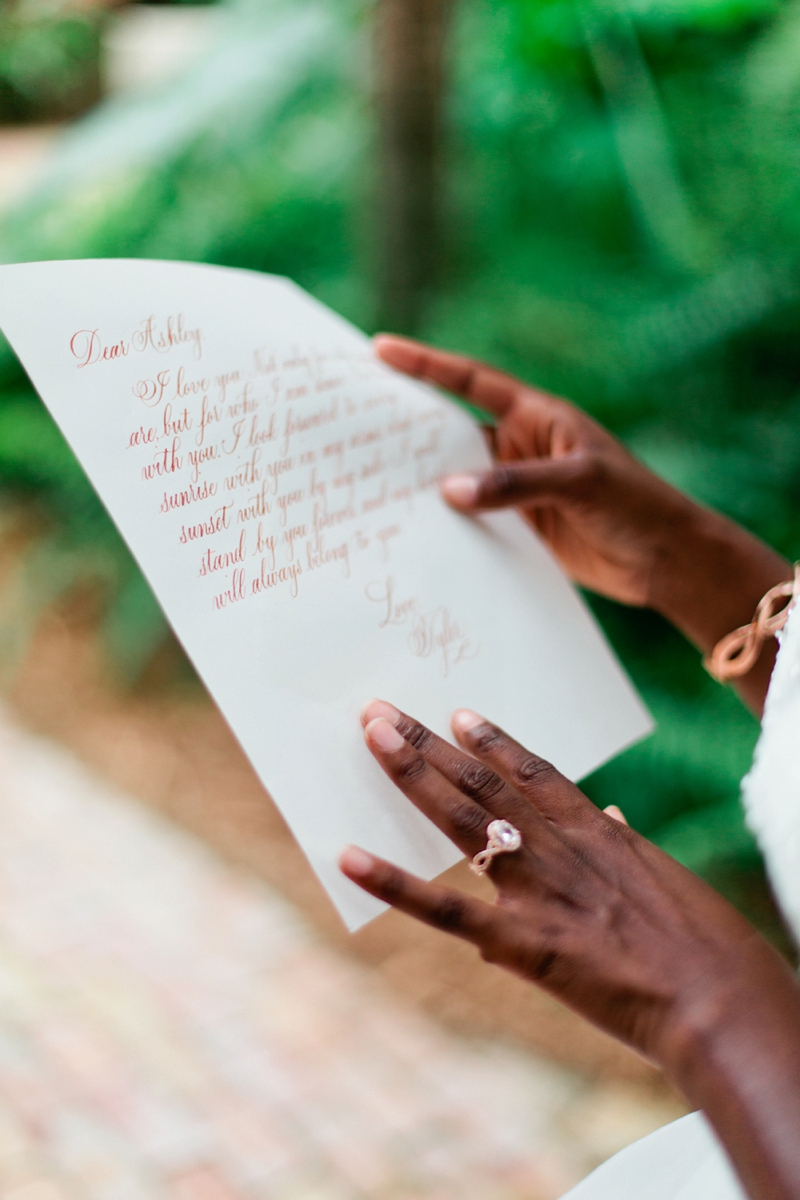 Dear Ashley,
I love you. Not only for
are, but for who I am
with you. I look forward to
sunrise with you in my arms
sunset with you by my side. I will
stand by you forever and my
will always belong to you
Love